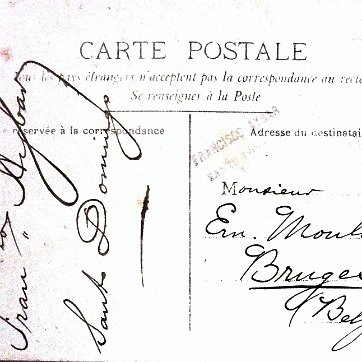 CARTE POSTALE
les pays étrangers n'acceptent pas la correspondance au recto
Se renseigner à la Poste
réservée à la correspondance
Adresse du destinatai
FRANCISCO
Monsieur
Ern. Moul
Bruges
(Belg
Santo Domingo